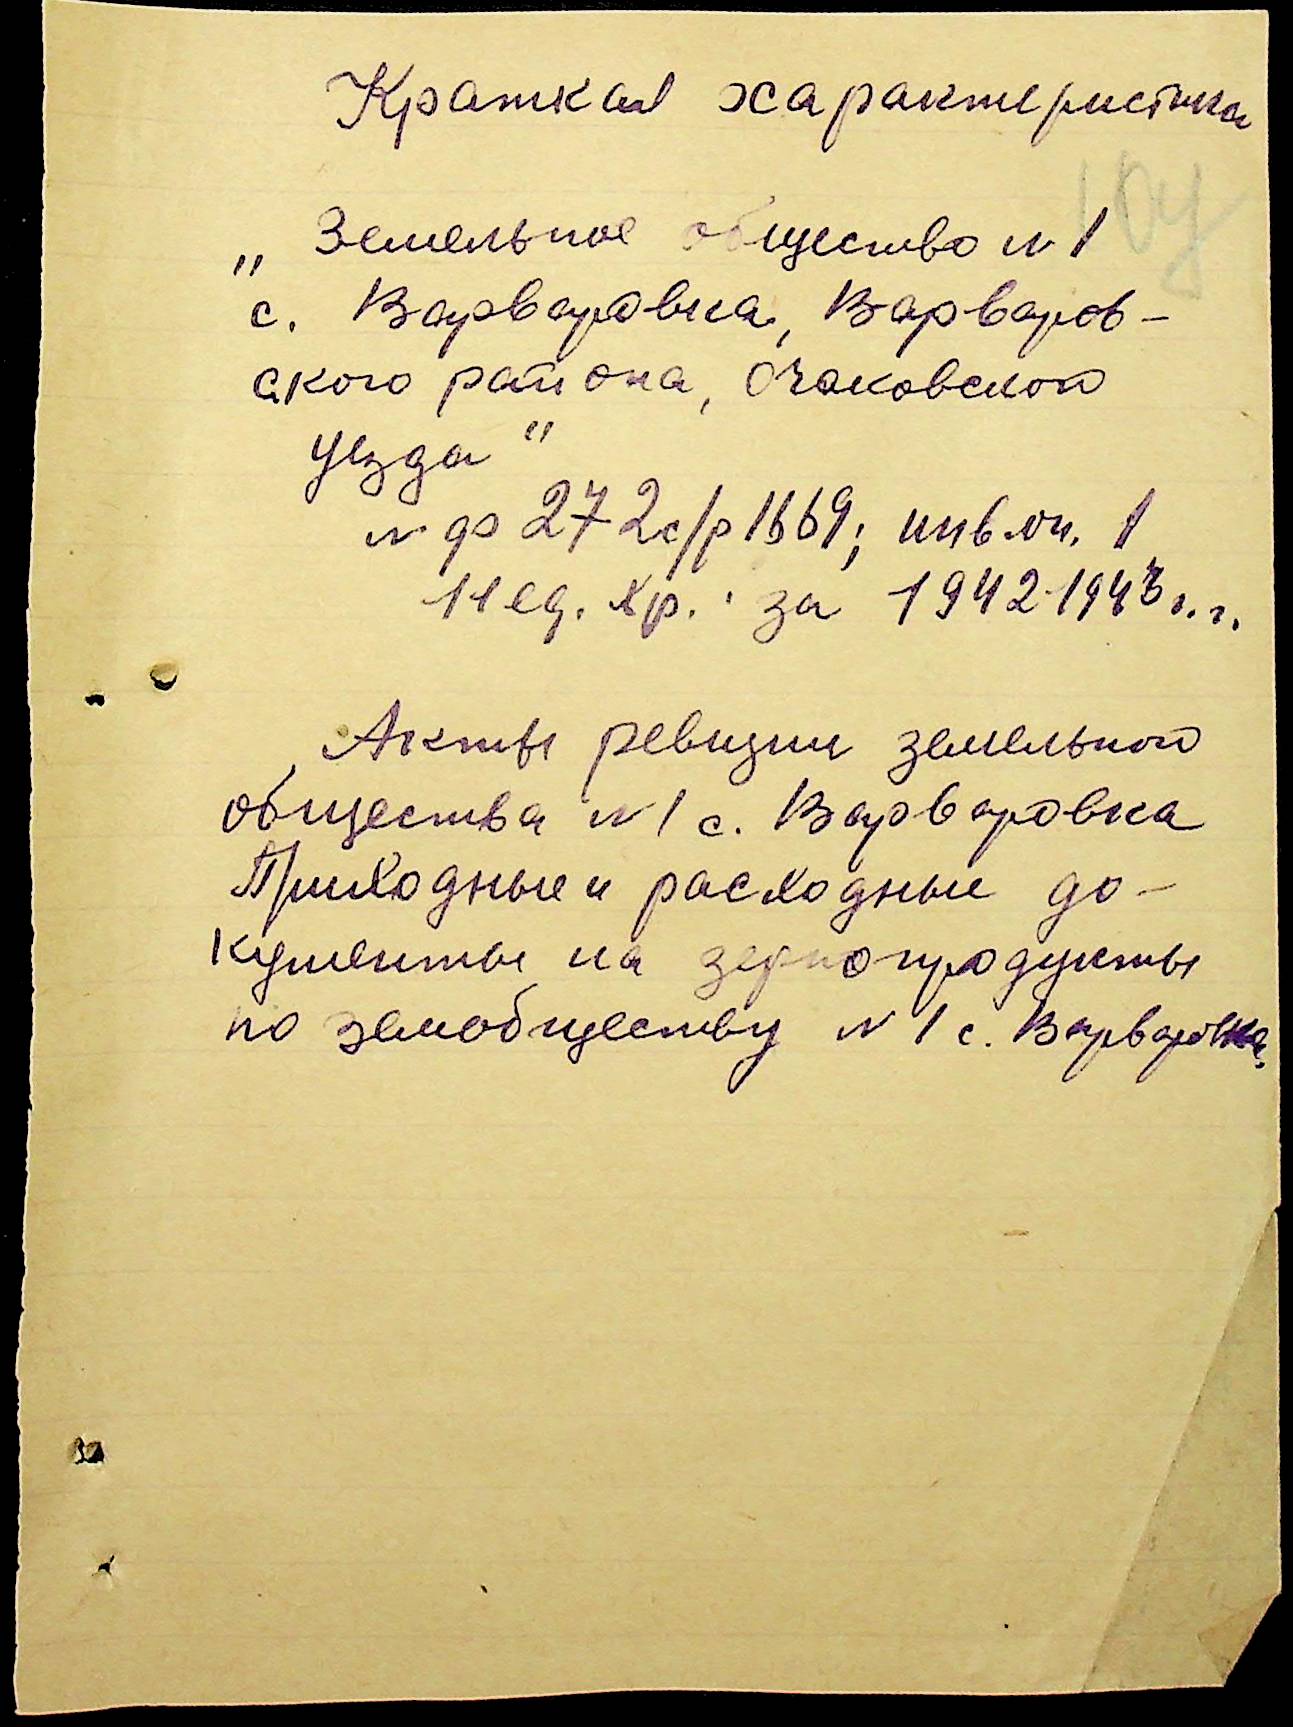 Краткая характеристика
„Земельное общество №1
с. Варваровка, Варваров-
ского района, Очаковского
уезда"
№ ф 272 с/р 1669; инв. оп. 1
11 ед. хр. за 1942-1943 г.г.
Акты ревизии земельного
общества №1 с. Варваровка
Приходные и расходные до-
кументы на зернопродукты
по земобществу №1 с. Варваровка.